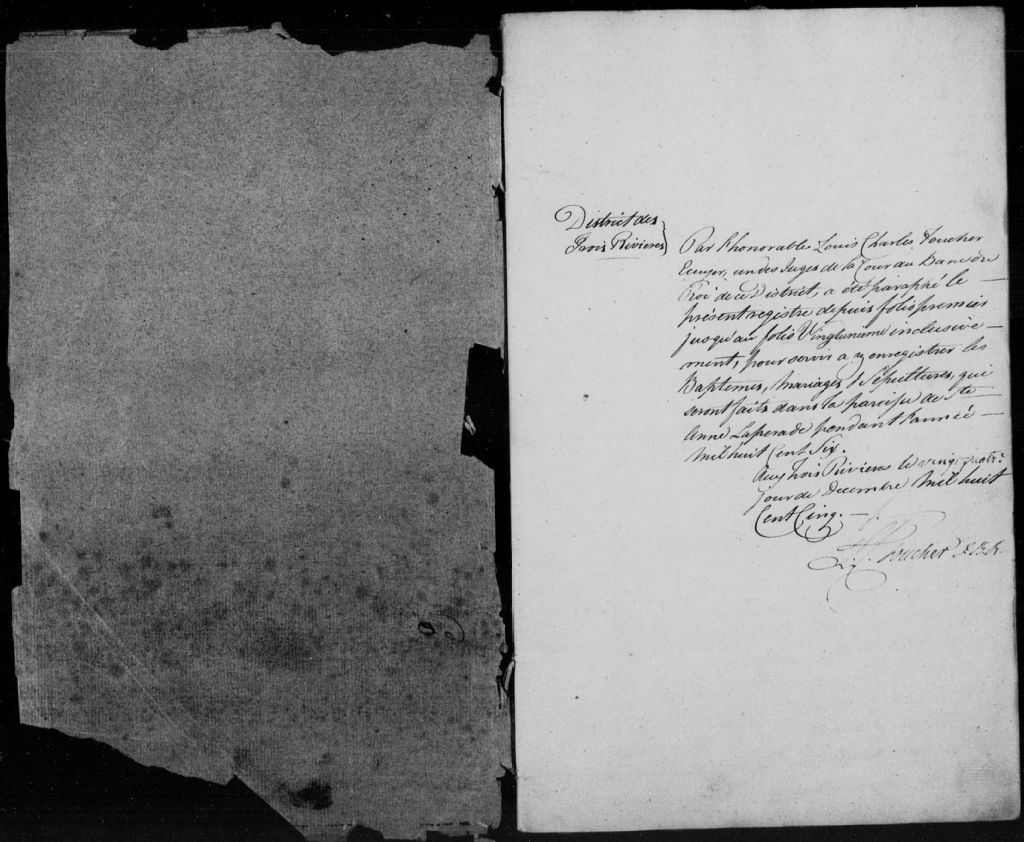 District des
Trois Rivieres
Par l'honorable Louis Charles Foucher
Ecuyer, un des Juges de la Cour du Banc du
Roi de ce District, a été paraphé le
présent registre depuis folio premier
jusqu'au folio Vingtunieme inclusive-
ment, pour servir a y enregistrer les
Baptemes, Mariages & Sépultures, qui
seront faits dans la paroisse de Ste
Anne Laperade pendant l'année
Mil huit Cent Six.
Aux trois Rivieres le vingt quatre
jour de Decembre Mil huit
Cent Cinq.
L. C. Foucher